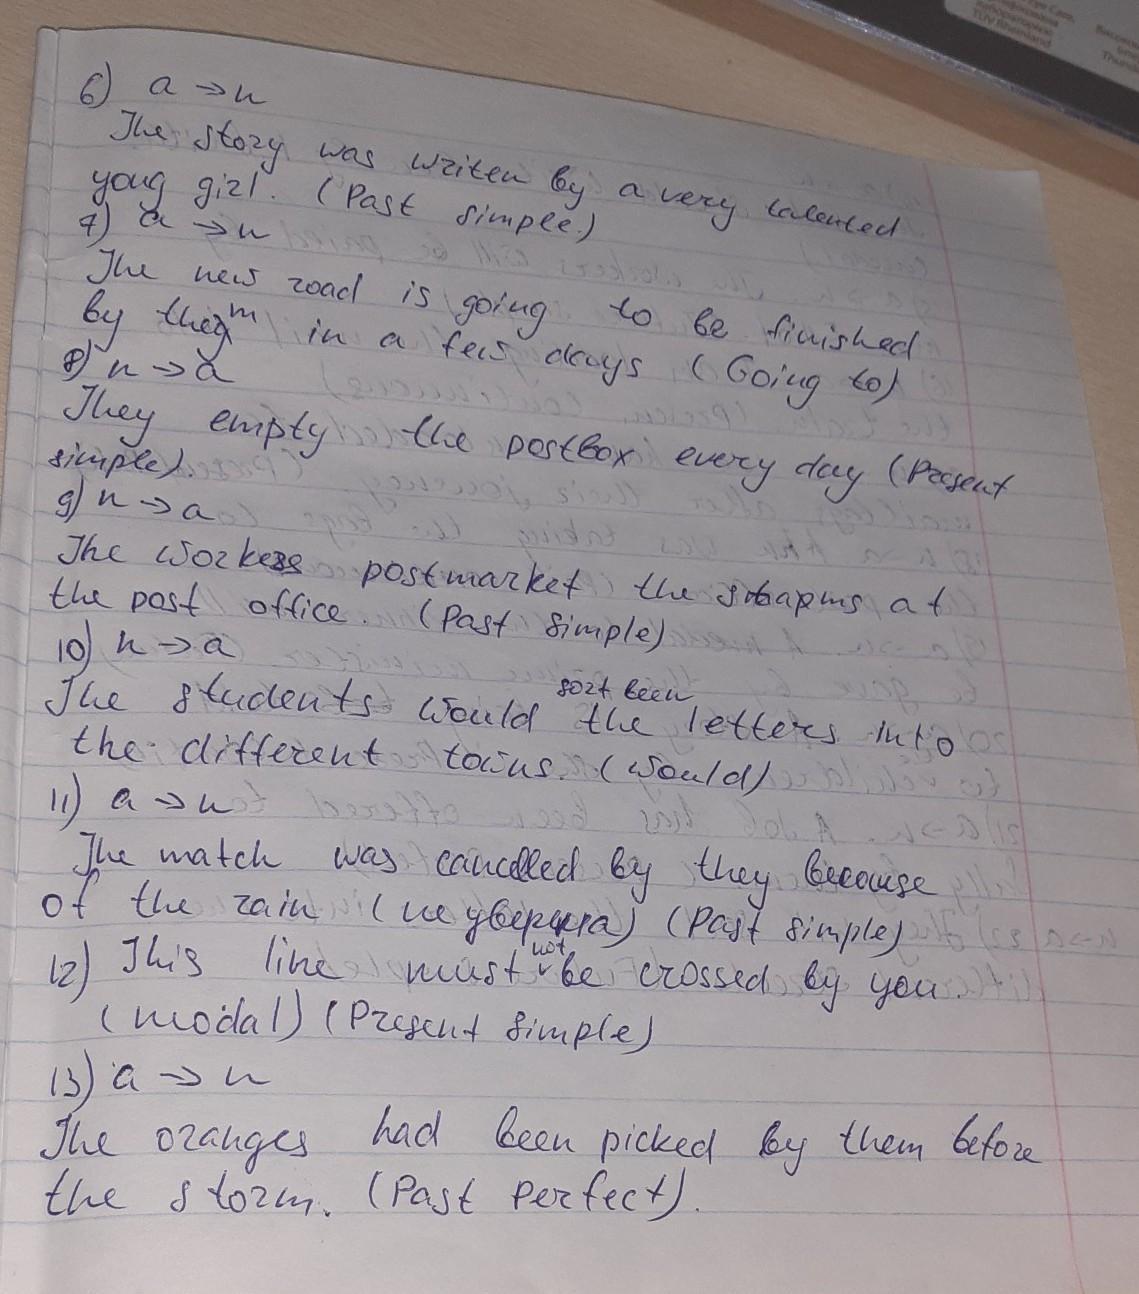 TÜV Rheinland
6) a → n
The story was writen by a very talented
youg girl. (Past simple.)
7) a → n
The new road is going to be finished
by them in a few days (Going to)
8) n → a
They empty the postbox every day (Present
simple).
9) n → a
The workers postmarket the stapms at
the post office. (Past simple)
10) n → a
The students would sort been the letters into
the different towns. (would)
11) a → n
The match was cancelled by they because
of the rain (не уверена) (Past simple)
12) This line must not be crossed by you.
(modal) (Present simple)
13) a → n
The oranges had been picked by them before
the storm. (Past perfect).